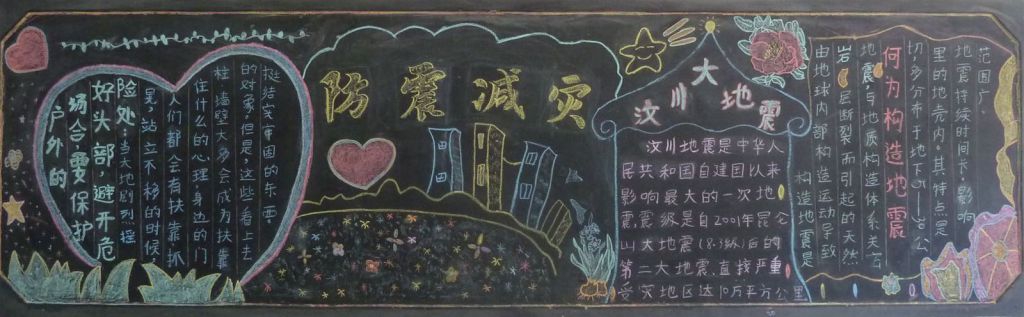 户外的
场合,要保护
好头部,避开危
险处:当大地剧烈摇
晃,站立不移的时候
人们都会有扶靠抓
住什么的心理.身边的门
柱,墙壁大多会成为扶靠
的对象.但是,这些看上去
挺结实牢固的东西
防震减灾
汶川大地震
汶川地震是中华人
民共和国自建国以来
影响最大的一次地
震,震级是自2001年昆仑
山大地震(级)后的
第二大地震,直接严重
受灾地区达10万平方公里
何为构造地震
构造地震是
由地球内部构造运动导致
岩层断裂而引起的天然
地震,与地质构造体系关密
切,多分布于地下5—70公
里的地壳内。其特点是
地震持续时间长,影响
范围广.